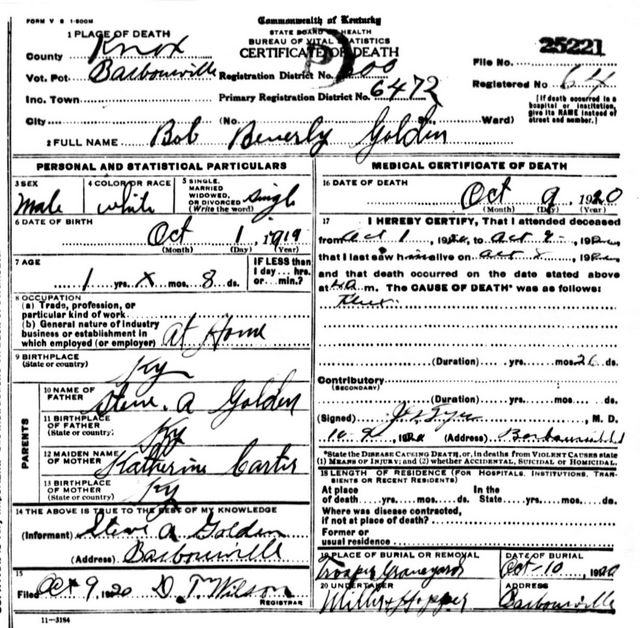 FORM V S 1-500M
Commonwealth of Kentucky
STATE BOARD OF HEALTH
BUREAU OF VITAL STATISTICS
CERTIFICATE OF DEATH
25221
1 PLACE OF DEATH
County Knox
File No.
Vot. Pct Barbourville Registration District No. 00
Registered No 64
Inc. Town Primary Registration District No. 6472
[If death occurred in a hospital or institution, give its NAME instead of street and number.]
City (No St., Ward)
2 FULL NAME Bob Beverly Golden
PERSONAL AND STATISTICAL PARTICULARS
3 SEX Male
4 COLOR OR RACE white
5 SINGLE, MARRIED WIDOWED, OR DIVORCED (Write the word) Single
6 DATE OF BIRTH Oct 1, 1919
(Month) (Day) (Year)
7 AGE
1 yrs. X mos. 8 ds.
IF LESS than 1 day ... hrs. or ... min.?
8 OCCUPATION
(a) Trade, profession, or particular kind of work
(b) General nature of industry business or establishment in which employed (or employer) At Home
9 BIRTHPLACE
(State or country) Ky
PARENTS
10 NAME OF FATHER Steve. A Golden
11 BIRTHPLACE OF FATHER
(State or country) Ky
12 MAIDEN NAME OF MOTHER Katherine Carter
13 BIRTHPLACE OF MOTHER
(State or country) Ky
14 THE ABOVE IS TRUE TO THE BEST OF MY KNOWLEDGE
(Informant) Steve A Golden
(Address) Barbourville
15
Filed Oct 9, 1920 D. T. Wilson
REGISTRAR
11-3184
MEDICAL CERTIFICATE OF DEATH
16 DATE OF DEATH
Oct 9 1920
(Month) (Day) (Year)
17 I HEREBY CERTIFY, That I attended deceased
from Oct 1, 192, to Oct, 192
that I last saw him alive on Oct, 192
and that death occurred on the date stated above
at m. The CAUSE OF DEATH* was as follows:
(Duration) yrs. mos. 26 ds.
Contributory
(SECONDARY)
(Duration) yrs. mos. ds.
(Signed), M. D.
, 1920 (Address) Barbourville
*State the DISEASE CAUSING DEATH, or, in deaths from VIOLENT CAUSES state (1) MEANS OF INJURY; and (2) whether ACCIDENTAL, SUICIDAL or HOMICIDAL.
18 LENGTH OF RESIDENCE (FOR HOSPITALS, INSTITUTIONS, TRANSIENTS OR RECENT RESIDENTS)
At place of death yrs. mos. ds. In the State yrs. mos. ds.
Where was disease contracted, if not at place of death?
Former or usual residence
19 PLACE OF BURIAL OR REMOVAL
Graveyard
DATE OF BURIAL
Oct-10, 1920
20 UNDERTAKER
Miller & Hopper
ADDRESS
Barbourville